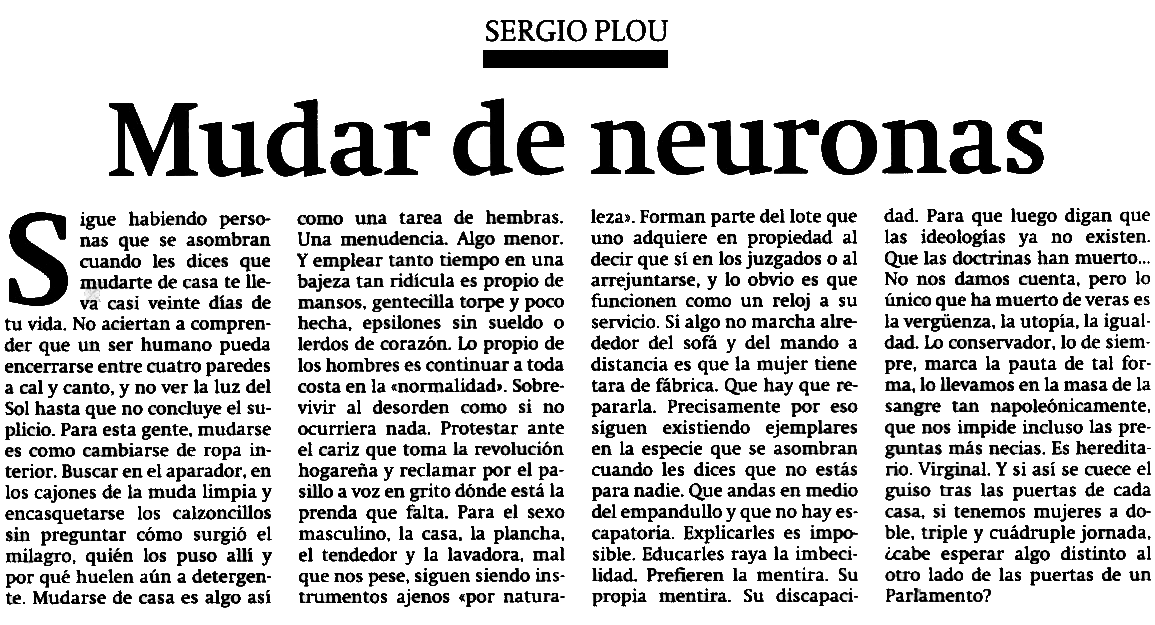 SERGIO PLOU
Mudar de neuronas
Sigue habiendo perso-
nas que se asombran
cuando les dices que
mudarte de casa te lle-
va casi veinte días de
tu vida. No aciertan a compren-
der que un ser humano pueda
encerrarse entre cuatro paredes
a cal y canto, y no ver la luz del
Sol hasta que no concluye el su-
plicio. Para esta gente, mudarse
es como cambiarse de ropa in-
terior. Buscar en el aparador, en
los cajones de la muda limpia y
encasquetarse los calzoncillos
sin preguntar cómo surgió el
milagro, quién los puso allí y
por qué huelen aún a detergen-
te. Mudarse de casa es algo así
como una tarea de hembras.
Una menudencia. Algo menor.
Y emplear tanto tiempo en una
bajeza tan ridícula es propio de
mansos, gentecilla torpe y poco
hecha, epsilones sin sueldo o
lerdos de corazón. Lo propio de
los hombres es continuar a toda
costa en la «normalidad». Sobre-
vivir al desorden como si no
ocurriera nada. Protestar ante
el cariz que toma la revolución
hogareña y reclamar por el pa-
sillo a voz en grito dónde está la
prenda que falta. Para el sexo
masculino, la casa, la plancha,
el tendedor y la lavadora, mal
que nos pese, siguen siendo ins-
trumentos ajenos «por natura-
leza». Forman parte del lote que
uno adquiere en propiedad al
decir que sí en los juzgados o al
arrejuntarse, y lo obvio es que
funcionen como un reloj a su
servicio. Si algo no marcha alre-
dedor del sofá y del mando a
distancia es que la mujer tiene
tara de fábrica. Que hay que re-
pararla. Precisamente por eso
siguen existiendo ejemplares
en la especie que se asombran
cuando les dices que no estás
para nadie. Que andas en medio
del empandullo y que no hay es-
capatoria. Explicarles es impo-
sible. Educarles raya la imbeci-
lidad. Prefieren la mentira. Su
propia mentira. Su discapaci-
dad. Para que luego digan que
las ideologías ya no existen.
Que las doctrinas han muerto...
No nos damos cuenta, pero lo
único que ha muerto de veras es
la vergüenza, la utopía, la igual-
dad. Lo conservador, lo de siem-
pre, marca la pauta de tal for-
ma, lo llevamos en la masa de la
sangre tan napoleónicamente,
que nos impide incluso las pre-
guntas más necias. Es heredita-
rio. Virginal. Y si así se cuece el
guiso tras las puertas de cada
casa, si tenemos mujeres a do-
ble, triple y cuádruple jornada,
¿cabe esperar algo distinto al
otro lado de las puertas de un
Parlamento?